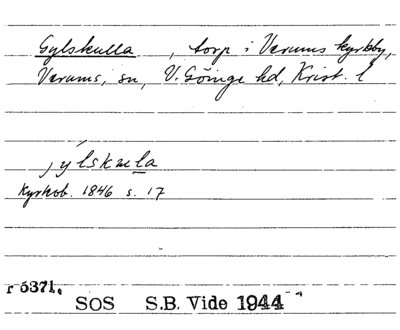 Gylskulla , torp i Verums kyrkby,
Verums, sn, V. Göinge hd, Krist. l
jýlskuḷa
Kyrkob. 1846 s. 17
r 5371.
SOS S.B. Vide 1944